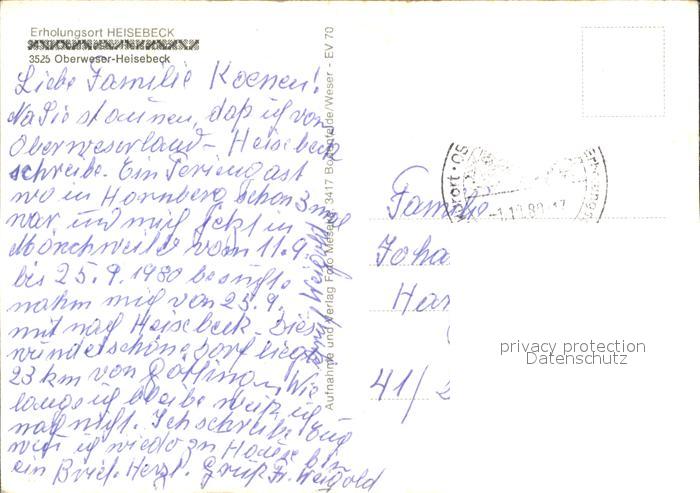 Erholungsort HEISEBECK
3525 Oberweser-Heisebeck
Liebe Familie Koenen!
Na Sie staunen, daß ich von
Oberweserland - Heisebeck
schreibe. Ein Feriengast
wo in Hornberg schon 3 mal
war und mich jetzt in
Mönchweiler vom 11.9.
bis 25.9.1980 besuchte
nahm mich von 25.9.
mit nach Heisebeck. Dies
wunderschöne Dorf liegt
23 km von Göttingen. Wie
lange ich bleibe weiß ich
noch nicht. Ich schreibe Euch
wenn ich wieder zu Hause bin
ein Brief. Herzl. Gruß Fr. Weigold
Weigold
Aufnahme und Verlag Foto 3417 Bodenfelde/Weser - EV 70
-1.10.80-17
Familie
Joha
Har
41/
privacy protection
Datenschutz